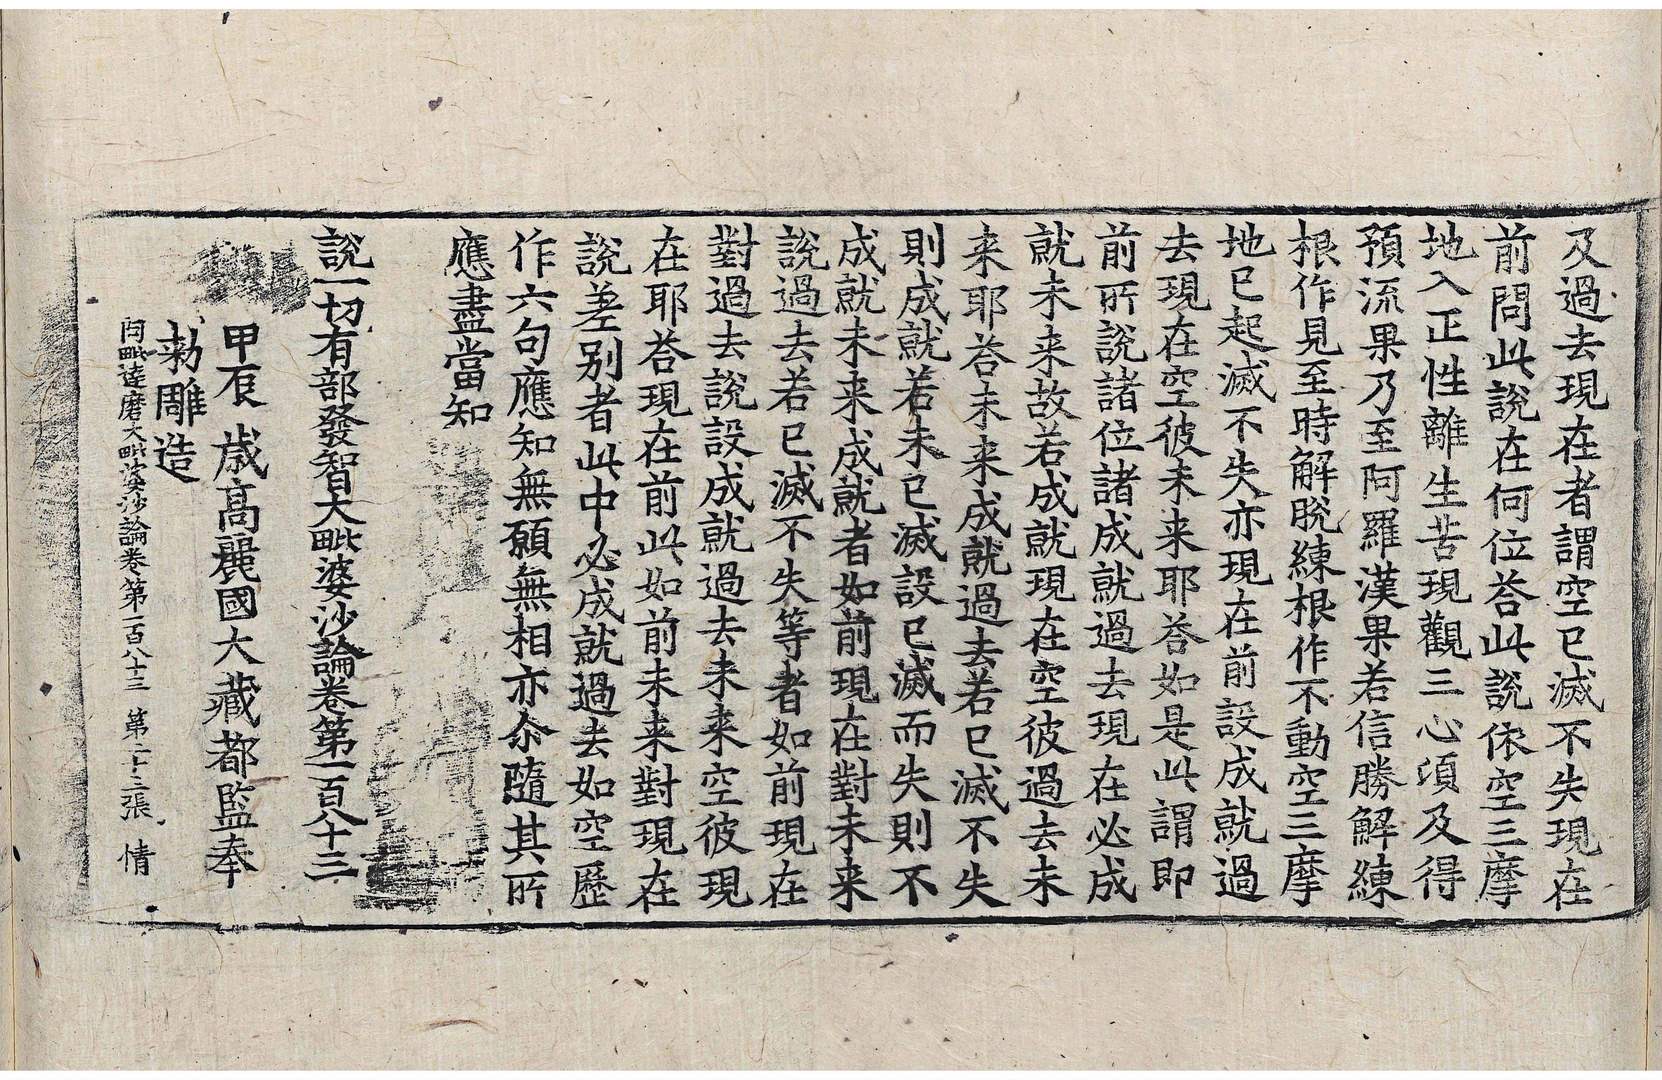 及過去現在者謂空已滅不失現在
前問此說在何位荅此說依空三摩
地入正性離生苦現觀三心頃及得
預流果乃至阿羅漢果若信勝解練
根作見至時解脫練根作不動空三摩
地已起滅不失亦現在前設成就過
去現在空彼未来耶荅如是此謂即
前所說諸位諸成就過去現在必成
就未来故若成就現在空彼過去未
来耶荅未来成就過去若已滅不失
則成就若未已滅設已滅而失則不
成就未来成就者如前現在對未来
說過去若已滅不失等者如前現在
對過去說設成就過去未来空彼現
在耶荅現在前此如前未来對現在
說差別者此中必成就過去如空歷
作六句應知無願無相亦尒隨其所
應盡當知
說一切有部發智大毗婆沙論卷第一百八十三
甲辰歲高麗國大藏都監奉
勅雕造
阿毗達磨大毗婆沙論卷第一百八十三 第二十三張 情